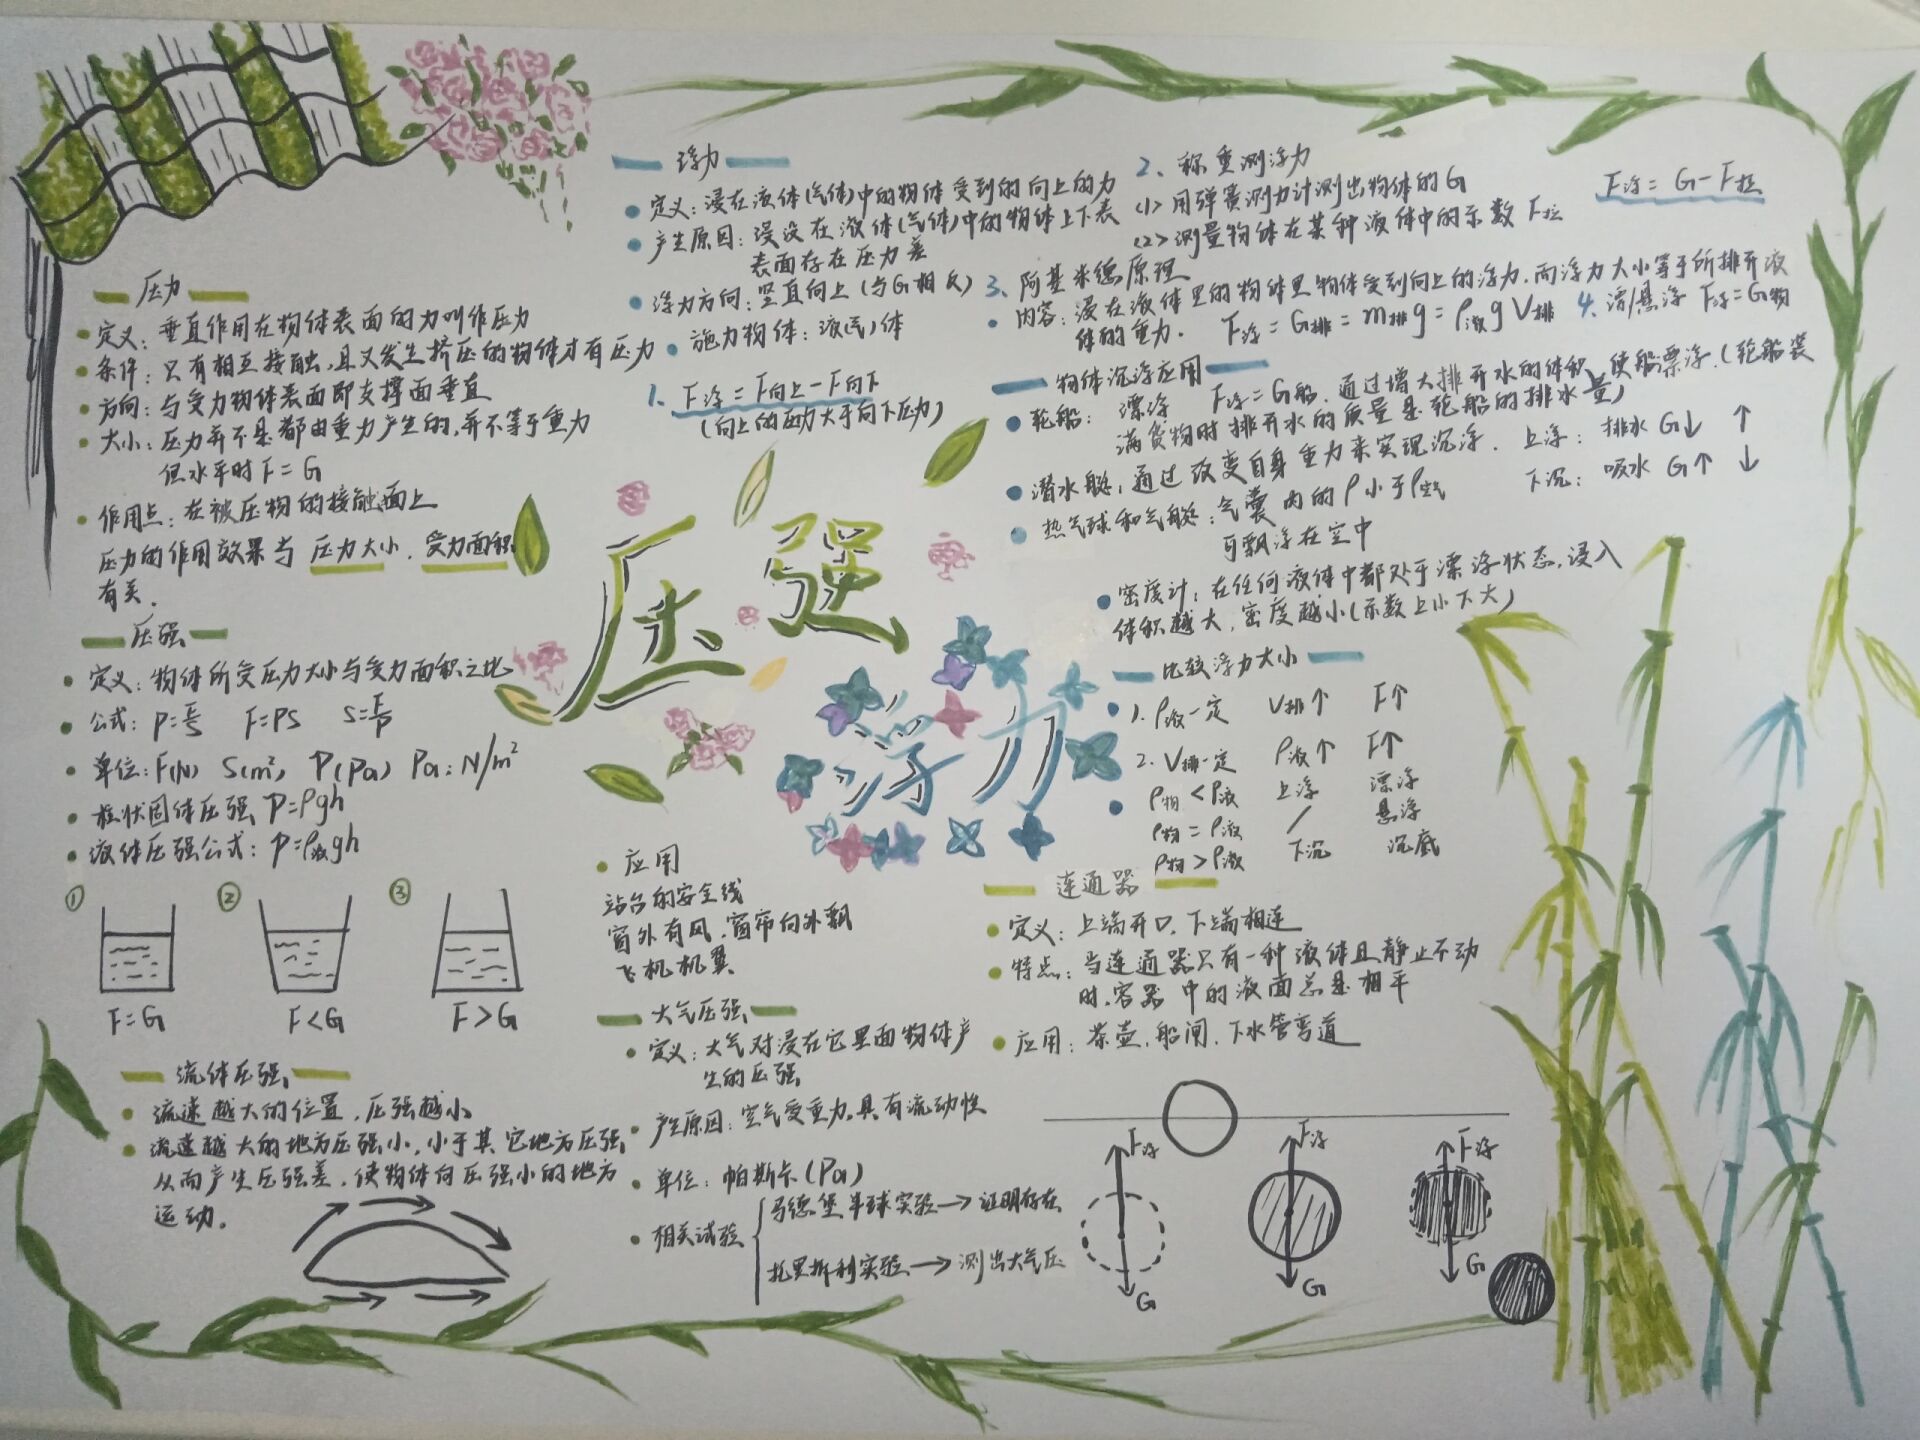 压力
定义：垂直作用在物体表面的力叫作压力
条件：只有相互接触，且又发生挤压的物体才有压力
方向：与受力物体表面即支撑面垂直
大小：压力并不是都由重力产生的，并不等于重力
但水平时F=G
作用点：在被压物的接触面上
压力的作用效果与 压力大小、受力面积
有关.
压强
定义：物体所受压力大小与受力面积之比
公式：P=F/S F=PS S=F/P
单位：F(N) S(m²) P(Pa) Pa：N/m²
柱状固体压强 P=ρgh
液体压强公式：P=ρ液gh
① ② ③
F=G F<G F>G
流体压强
流速越大的位置，压强越小
流速越大的地方压强小，小于其它地方压强
从而产生压强差，使物体向压强小的地方
运动.
浮力
定义：浸在液体(气体)中的物体受到的向上的力
产生原因：浸没在液体(气体)中的物体上下表
表面存在压力差
浮力方向：竖直向上(与G相反)
施力物体：液(气)体
1、F浮=F向上-F向下
(向上的压力大于向下压力)
压强
浮力
应用
站台的安全线
窗外有风，窗帘向外飘
飞机机翼
大气压强
定义：大气对浸在它里面物体产
生的压强
产生原因：空气受重力，具有流动性
单位：帕斯卡(Pa)
相关试验
马德堡半球实验→证明存在
托里拆利实验→测出大气压
2、称重测浮力
<1>用弹簧测力计测出物体的G
<2>测量物体在某种液体中的示数F拉
F浮=G-F拉
3、阿基米德原理
内容：浸在液体里的物体里物体受到向上的浮力，而浮力大小等于所排开液
体的重力. F浮=G排=m排g=ρ液gV排
4、漂/悬浮 F浮=G物
物体沉浮应用
轮船：漂浮 F浮=G船，通过增大排开水的体积，使船漂浮.(轮船装
满货物时排开水的质量是轮船的排水量)
潜水艇：通过改变自身重力来实现沉浮. 上浮：排水 G↓ ↑
下沉：吸水 G↑ ↓
热气球和气艇：气囊内的ρ小于ρ空气
可飘浮在空中
密度计：在任何液体中都处于漂浮状态，浸入
体积越大，密度越小(示数上小下大)
比较浮力大小
1. ρ液一定 V排↑ F↑
2. V排一定 ρ液↑ F↑
ρ物<ρ液 上浮 漂浮
ρ物=ρ液 / 悬浮
ρ物>ρ液 下沉 沉底
连通器
定义：上端开口，下端相连
特点：当连通器只有一种液体且静止不动
时，容器中的液面总是相平
应用：茶壶，船闸，下水管弯道
F浮 F浮 F浮
G G G